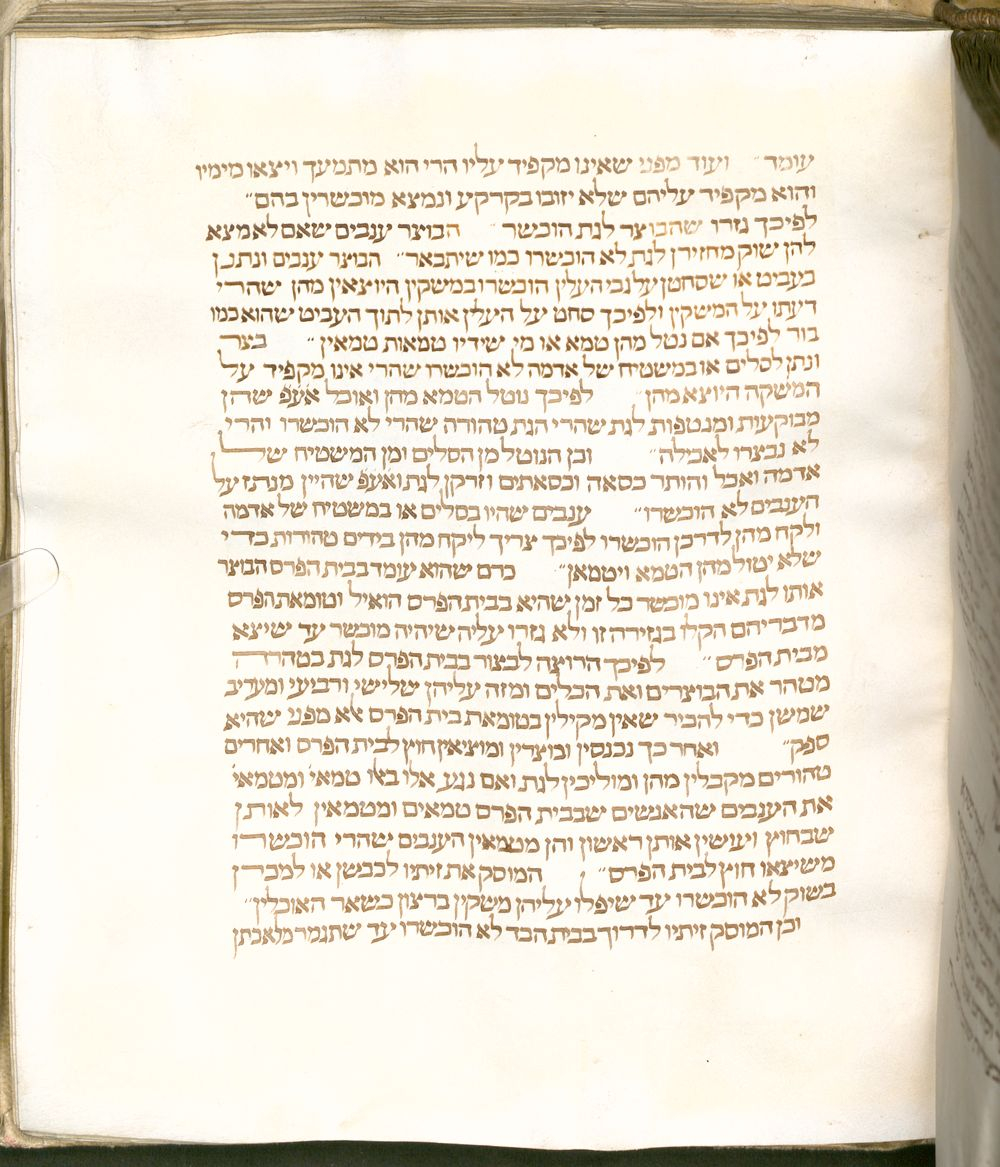 עומד״ ועוד מפני שאינו מקפיד עליו הרי הוא מתמעך ויצאו מימיו
והוא מקפיד עליהם שלא יזובו בקרקע ונמצא מוכשרין בהם״
לפיכך גזרו שהבוצר לגת הוכשר״ הבוצר ענבים שאם לא מצא
להן שוק מחזירן לגת לא הוכשרו כמו שיתבאר״ הבוצר ענבים ונתנן
בעביט או שסחטן על גבי העלין הוכשרו במשקין היוצאין מהן שהרי
דעתו על המשקין ולפיכך סחט על העלין אותן לתוך העביט שהוא כמו
בור לפיכך אם נטל מהן טמא או מי שידיו טמאות טמאין״ בצר
ונתן לסלים או במשטיח של אדמה לא הוכשרו שהרי אינו מקפיד על
המשקה היוצא מהן״ לפיכך נוטל הטמא מהן ואוכל אעפ שהן
מבוקעות ומנטפות לגת שהרי הגת טהורה שהרי לא הוכשרו והרי
לא נבצרו לאכילה״ וכן הנוטל מן הסלים ומן המשטיח של
אדמה ואכל והותר כסאה וכסאתים וזרקן לגת ואעפ שהיין מנתז על
הענבים לא הוכשרו״ ענבים שהיו בסלים או במשטיח של אדמה
ולקח מהן לדרכן הוכשרו לפיכך צריך ליקח מהן בידים טהורות כדי
שלא יטול מהן הטמא ויטמאן״ כרם שהוא עומד בבית הפרס הבוצר
אותו לגת אינו מוכשר כל זמן שהיא בבית הפרס הואיל וטומאת הפרס
מדבריהם הקלו בגזירה זו ולא גזרו עליה שיהיה מוכשר עד שיצא
מבית הפרס״ לפיכך הרוצה לבצור בבית הפרס לגת בטהרה
מטהר את הבוצרים ואת הכלים ומזה עליהן שלישי ורביעי ומעריב
שמשן כדי להכיר שאין מקילין בטומאת בית הפרס אלא מפני שהיא
ספק״ ואחר כך נכנסין ובוצרין ומוציאין חוץ לבית הפרס ואחרים
טהורים מקבלין מהן ומוליכין לגת ואם נגע אלו באו טמאי׳ ומטמאי׳
את הענבים שהאנשים שבבית הפרס טמאים ומטמאין לאותן
שבחוץ ועושין אותן ראשון והן מטמאין הענבים שהרי הוכשרו
משיצאו חוץ לבית הפרס״ המוסק את זיתיו לכבשן או למכרן
בשוק לא הוכשרו עד שיפלו עליהן משקין ברצון כשאר האוכלין״
וכן המוסק זיתיו לדרוך בבית הבד לא הוכשרו עד שתגמר מלאכתן